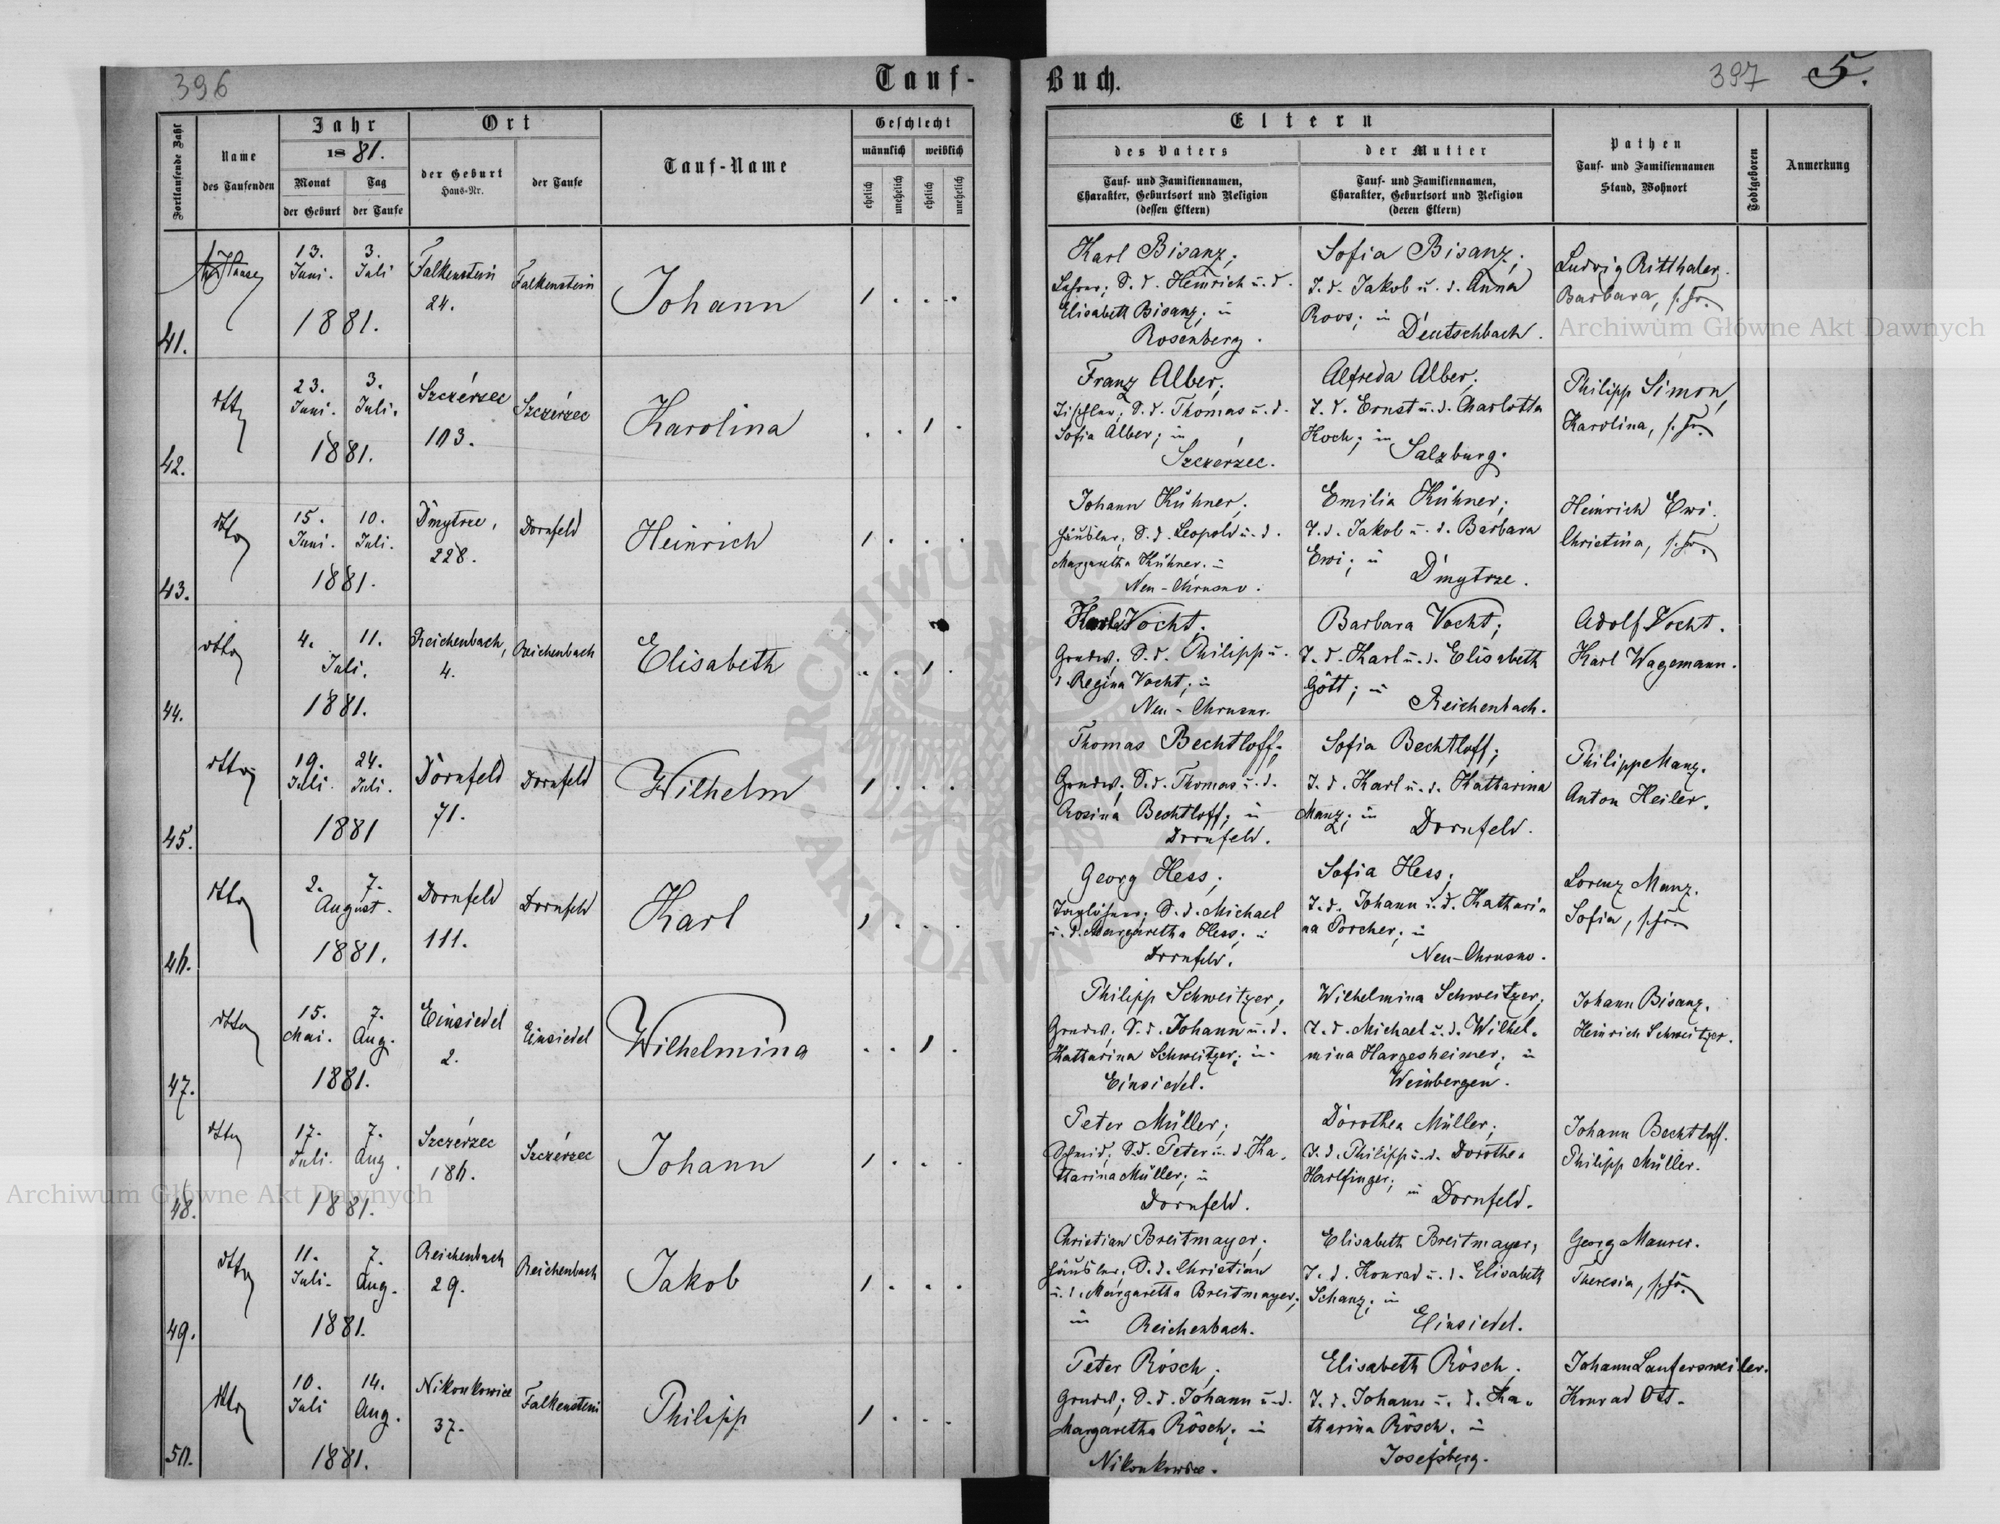 396
Tauf-
Buch.
397
5.
Fortlaufende Zahl
Name
des Taufenden
Jahr
1881.
Monat
Tag
der Geburt
der Taufe
Ort
der Geburt
Haus-Nr.
der Taufe
Tauf-Name
Geschlecht
männlich
weiblich
ehelich
unehelich
ehelich
unehelich
Eltern
des Vaters
der Mutter
Tauf- und Familiennamen,
Charakter, Geburtsort und Religion
(dessen Eltern)
Tauf- und Familiennamen,
Charakter, Geburtsort und Religion
(deren Eltern)
Pathen
Tauf- und Familiennamen
Stand, Wohnort
Todtgeboren
Anmerkung
41.
13.
Juni.
3.
Juli
1881.
Falkenstein
24.
Falkenstein
Johann
1 . . .
Karl Bisanz;
Lehrer; S. d. Heinrich u. d.
Elisabeth Bisanz; in
Rosenberg.
Sofia Bisanz;
T. d. Jakob u. d. Anna
Roos; in
Deutschbach.
Ludwig Ritthaler.
Barbara,
42.
dtto
23.
Juni.
3.
Juli.
1881.
Szczérzec
103.
Szczérzec
Karolina
. . 1 .
Franz Alber;
Tischler; S. d. Thomas u. d.
Sofia Alber; in
Szczerzec.
Alfreda Alber;
T. d. Ernst u. d. Charlotta
Koch; in
Salzburg.
Philipp Simon,
Karolina,
43.
dtto
15.
Juni.
10.
Juli.
1881.
Dmytrze,
228.
Dornfeld
Heinrich
1 . . .
Johann Kühner;
Häusler; S. d. Leopold u. d.
Margaretha Kühner. in
Neu-Chrusno.
Emilia Kühner;
T. d. Jakob u. d. Barbara
Ewi; in
Dmytrze.
Heinrich Ewi.
Christina,
44.
dtto
4.
11.
Juli.
1881.
Reichenbach,
4.
Reichenbach
Elisabeth
. . 1 .
Karl Vocht;
Grundw; S. d. Philipp u.
d. Regina Vocht; in
Neu-Chrusno.
Barbara Vocht;
T. d. Karl u. d. Elisabeth
Gött; in
Reichenbach.
Adolf Vocht.
Karl Wagemann.
45.
dtto
19.
Juli.
24.
Juli.
1881
Dornfeld
71.
Dornfeld
Wilhelm
1 . . .
Thomas Bechtloff;
Grundw; S. d. Thomas u. d.
Rosina Bechtloff; in
Dornfeld.
Sofia Bechtloff;
T. d. Karl u. d. Katharina
Manz; in
Dornfeld.
Philipp Manz.
Anton Heiler.
46.
dtto
2.
7.
August.
1881.
Dornfeld
111.
Dornfeld
Karl
1 . . .
Georg Hess;
Taglöhner; S. d. Michael
u. d. Margaretha Hess; in
Dornfeld.
Sofia Hess;
T. d. Johann u. d. Kathari
na Porcher; in
Neu-Chrusno.
Lorenz Manz.
Sofia,
47.
dtto
15.
Mai.
7.
Aug.
1881.
Einsiedel
2.
Einsiedel
Wilhelmina
. . 1 .
Philipp Schweitzer;
Grundw; S. d. Johann u. d.
Katharina Schweitzer; in
Einsiedel.
Wilhelmina Schweitzer;
T. d. Michael u. d. Wilhel-
mina Hargesheimer; in
Weinbergen.
Johann Bisanz.
Heinrich Schweitzer.
48.
dtto
17.
Juli.
7.
Aug.
1881.
Szczérzec
186.
Szczérzec
Johann
1 . . .
Peter Müller;
Schmid; S. d. Peter u. d. Ka-
tharina Müller; in
Dornfeld.
Dorothea Müller;
T. d. Philipp u. d. Dorothea
Harlfinger; in
Dornfeld.
Johann Bechtloff.
Philipp Müller.
49.
dtto
11.
Juli.
7.
Aug.
1881.
Reichenbach
29.
Reichenbach
Jakob
1 . . .
Christian Breitmayer;
Häusler; S. d. Christian
u. d. Margaretha Breitmayer;
in
Reichenbach.
Elisabeth Breitmayer;
T. d. Konrad u. d. Elisabeth
Schanz; in
Einsiedel.
Georg Maurer.
Theresia,
50.
dtto
10.
Juli
14.
Aug.
1881.
Nikonkowice
37.
Falkenstein
Philipp
1 . . .
Peter Rösch;
Grundw; S. d. Johann u. d.
Margaretha Rösch; in
Nikonkowice.
Elisabeth Rösch;
T. d. Johann u. d. Ka-
tharina Rösch; in
Josefsberg.
Johann Laufersweiler.
Konrad Ott.
Archiwum Główne Akt Dawnych
Archiwum Główne Akt Dawnych